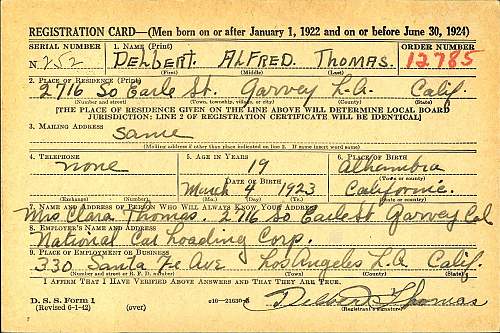 REGISTRATION CARD—(Men born on or after January 1, 1922 and on or before June 30, 1924)
SERIAL NUMBER 1. NAME (Print) ORDER NUMBER
N. 252 DELBERT ALFRED THOMAS. 12785
(First) (Middle) (Last)
2. PLACE OF RESIDENCE (Print)
2716 So Earle St. Garvey L.A. Calif.
(Number and street) (Town, township, village, or city) (County) (State)
[THE PLACE OF RESIDENCE GIVEN ON THE LINE ABOVE WILL DETERMINE LOCAL BOARD
JURISDICTION; LINE 2 OF REGISTRATION CERTIFICATE WILL BE IDENTICAL]
3. MAILING ADDRESS
Same
[Mailing address if other than place indicated on line 2. If same insert word same]
4. TELEPHONE 5. AGE IN YEARS 6. PLACE OF BIRTH
none 19 Alhambra
DATE OF BIRTH (Town or county)
March 4 1923 California.
(Exchange) (Number) (Mo.) (Day) (Yr.) (State or country)
7. NAME AND ADDRESS OF PERSON WHO WILL ALWAYS KNOW YOUR ADDRESS
Mrs Clara Thomas. 2716 So Earle St Garvey Cal
8. EMPLOYER'S NAME AND ADDRESS
National Car Loading Corp.
9. PLACE OF EMPLOYMENT OR BUSINESS
330 Santa Fe Ave Los Angeles L.A Calif.
(Number and street or R. F. D. number) (Town) (County) (State)
I AFFIRM THAT I HAVE VERIFIED ABOVE ANSWERS AND THAT THEY ARE TRUE.
D. S. S. Form 1
(Revised 6-1-42) (over) Delbert Thomas
(Registrant's signature)